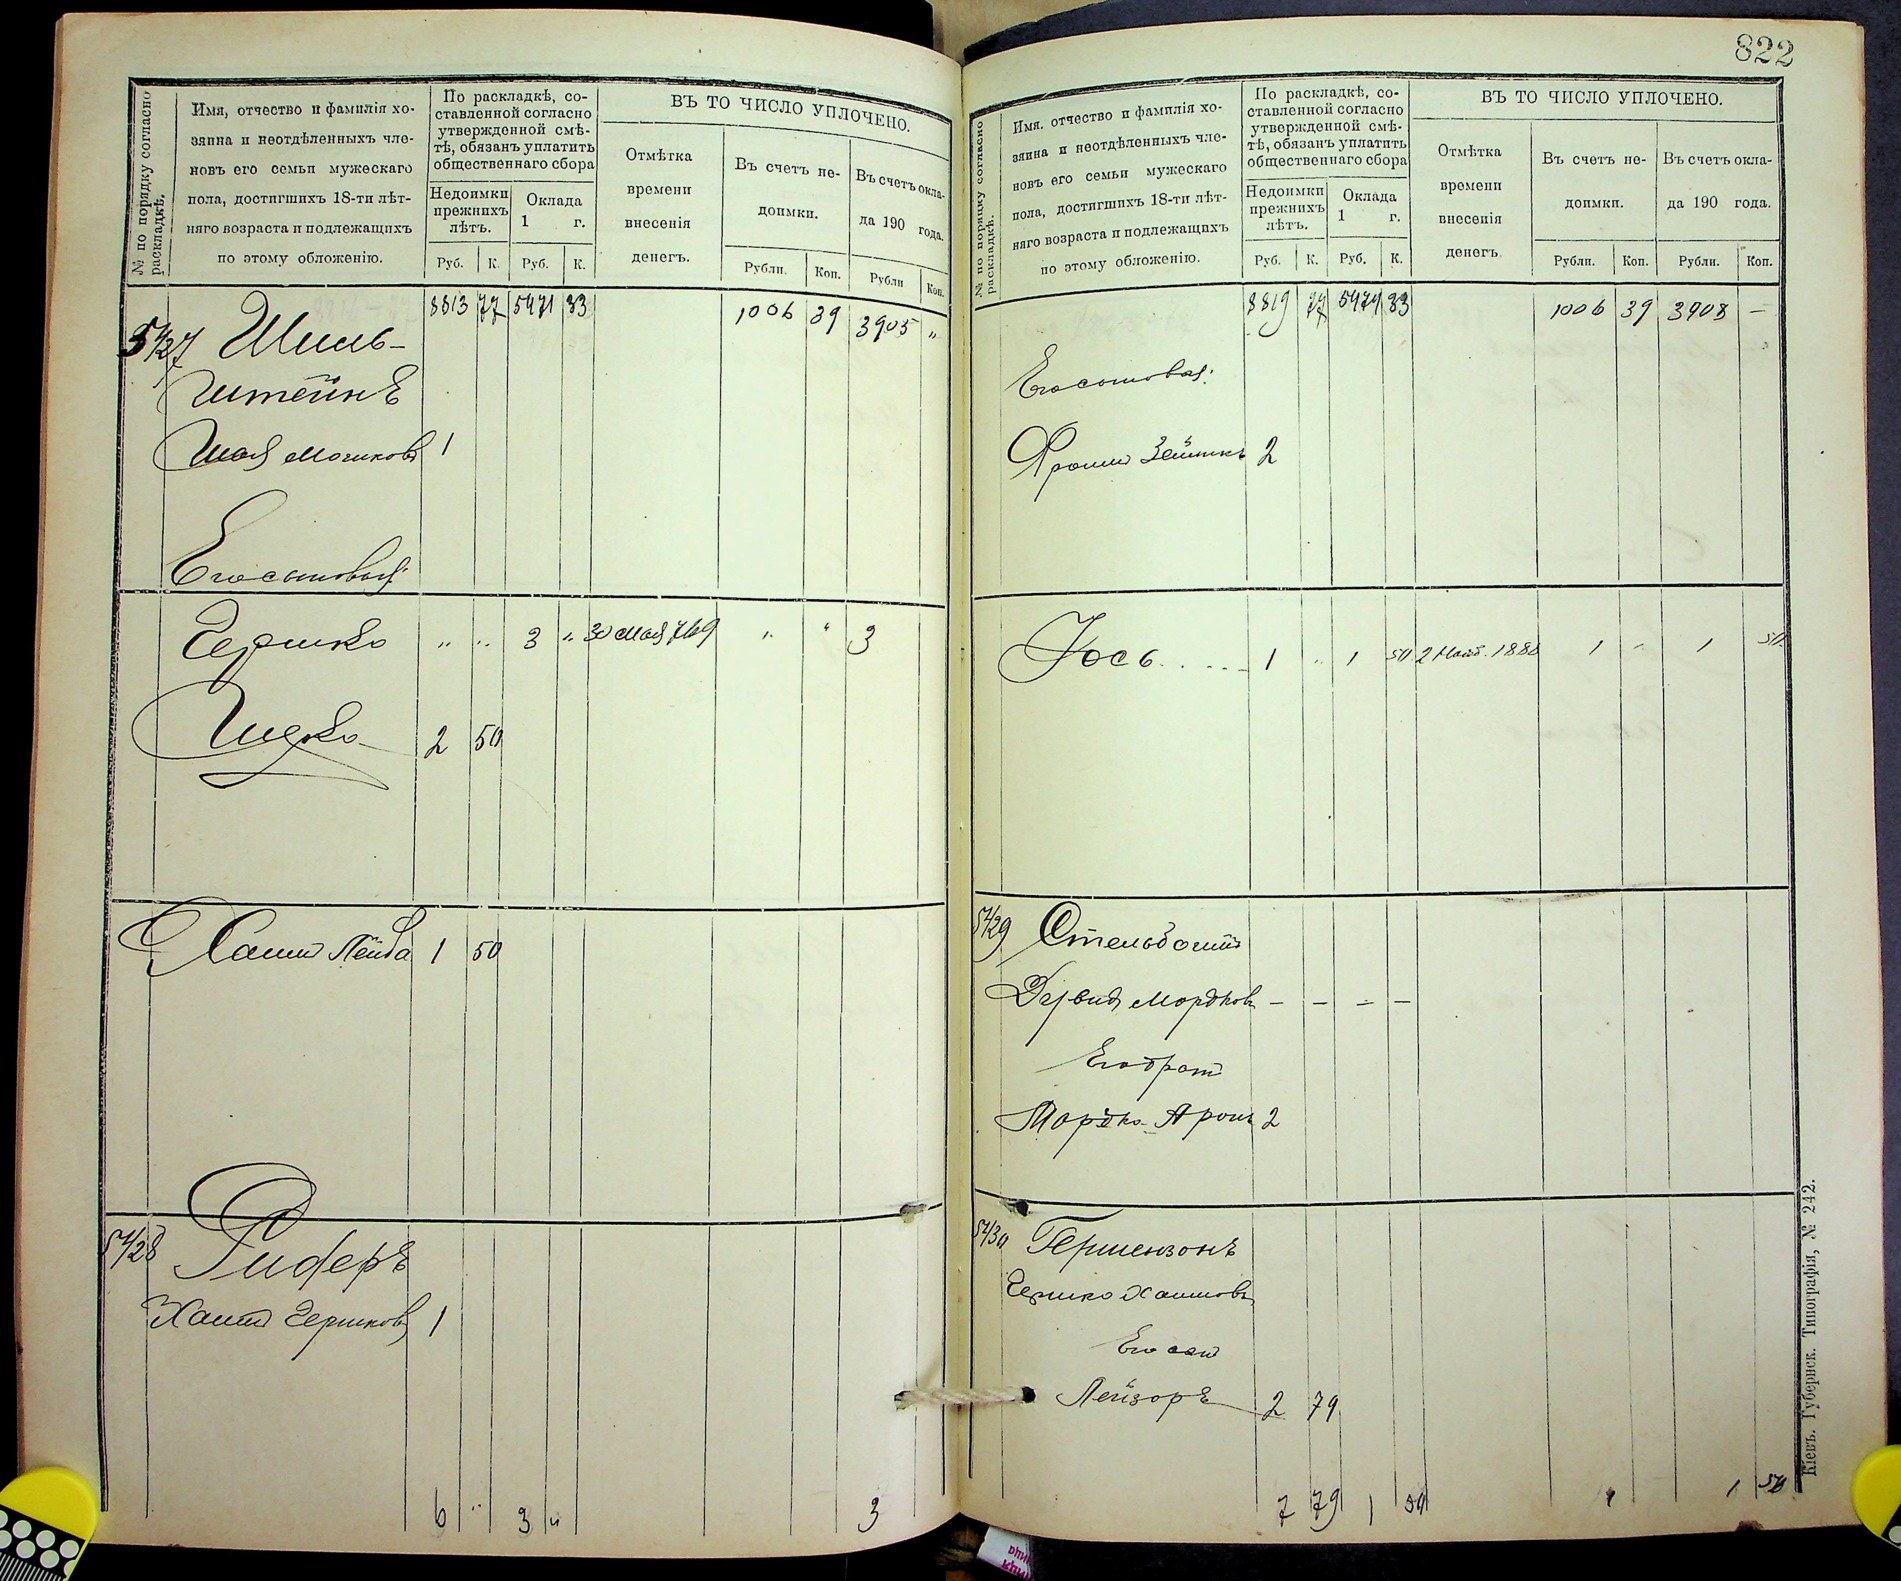 822
№ по порядку согласно раскладкѣ.
Имя, отчество и фамилія хо-
зяина и неотдѣленныхъ чле-
новъ его семьи мужескаго
пола, достигшихъ 18-ти лѣт-
няго возраста и подлежащихъ
по этому обложенію.
По раскладкѣ, со-
ставленной согласно
утвержденной смѣ-
тѣ, обязанъ уплатить
общественнаго сбора
Недоимки
прежнихъ
лѣтъ.
Оклада
1 г.
Руб. К. Руб. К.
ВЪ ТО ЧИСЛО УПЛОЧЕНО.
Отмѣтка
времени
внесенія
денегъ.
Въ счетъ не-
доимки.
Въ счетъ окла-
да 190 года.
Рубли. Коп. Рубли Коп.
8813 77 5471 83 1006 39 3905 "
5427 Шиль-
штейнъ
Шая 1
Его сыновья:
Гершко " " 3 " 30 Мая " " 3
Ицко 2 50
Хаимъ Лейба 1 50
5428 Риферъ
Хаимъ Гершков 1
6 " 3 " 3
№ по порядку согласно раскладкѣ.
Имя, отчество и фамилія хо-
зяина и неотдѣленныхъ чле-
новъ его семьи мужескаго
пола, достигшихъ 18-ти лѣт-
няго возраста и подлежащихъ
по этому обложенію.
По раскладкѣ, со-
ставленной согласно
утвержденной смѣ-
тѣ, обязанъ уплатить
общественнаго сбора
Недоимки
прежнихъ
лѣтъ.
Оклада
1 г.
Руб. К. Руб. К.
ВЪ ТО ЧИСЛО УПЛОЧЕНО.
Отмѣтка
времени
внесенія
денегъ.
Въ счетъ не-
доимки.
Въ счетъ окла-
да 190 года.
Рубли. Коп. Рубли. Коп.
8819 77 5474 83 1006 39 3908 —
Его сыновья:
2
Іось 1 " 1 50 1 " 1 50
5429
Мордков - - - -
Его братъ
Мордко-Аронъ 2
5430 Гершензонъ
Гершко Хаимовъ
Его сынъ
Лейзоръ 2 79
7 79 1 50 1 1 50
Кіевъ. Губернск. Типографія, № 242.